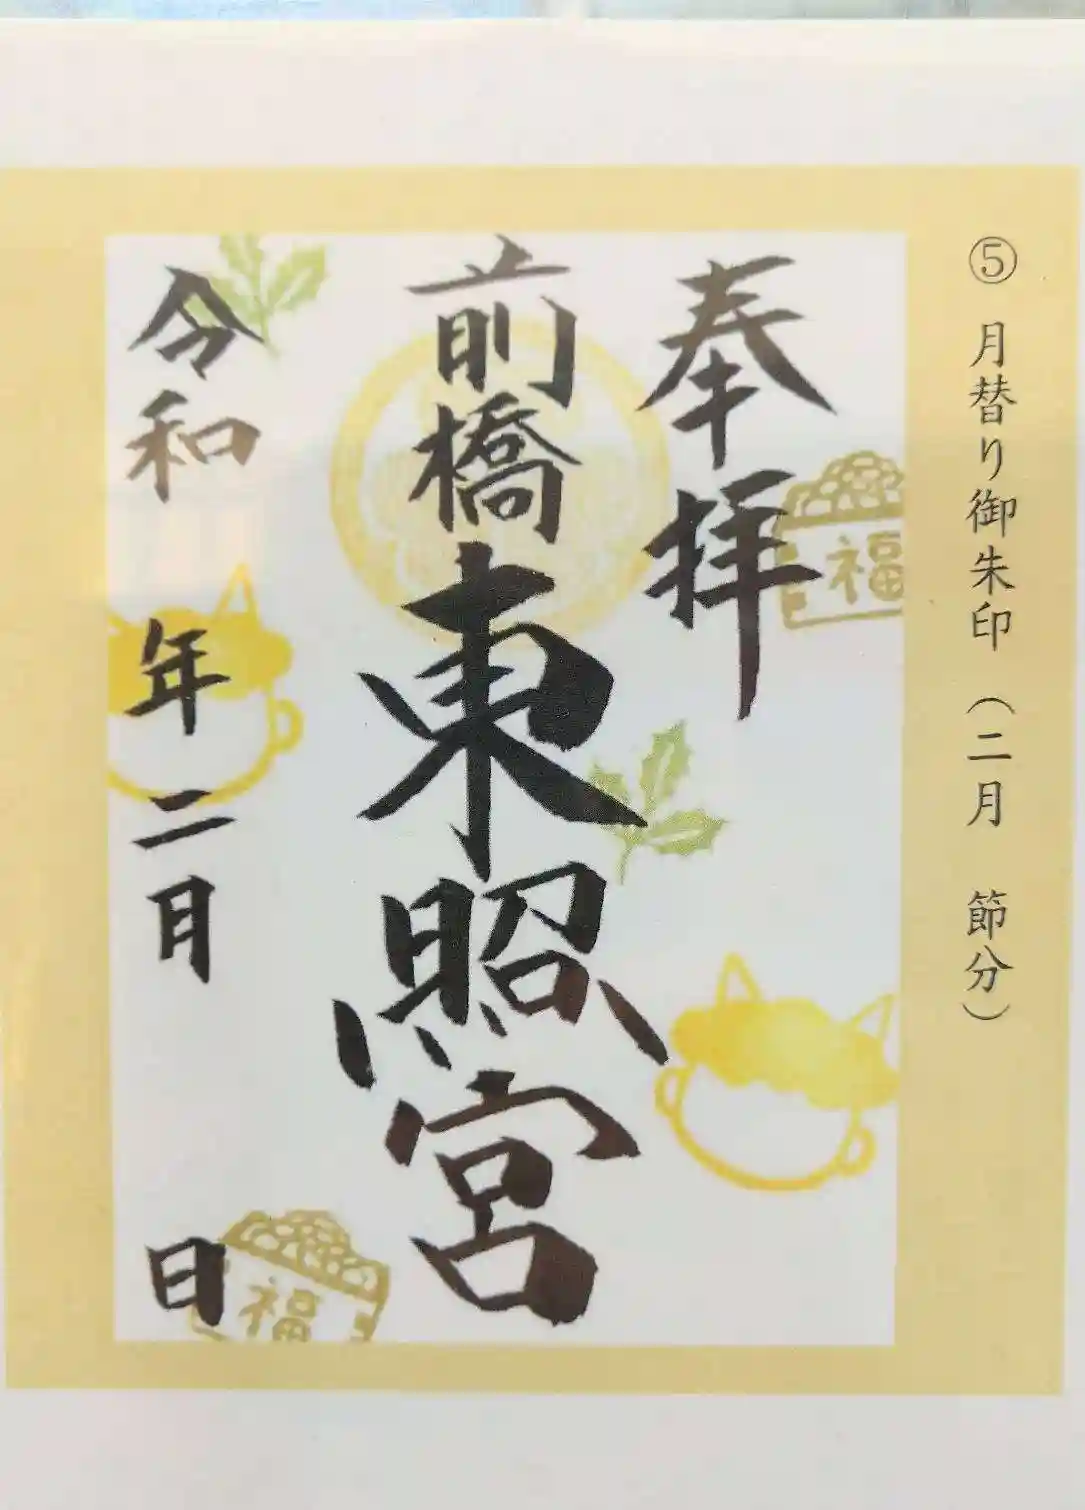 ⑤ 月替り御朱印（二月 節分）
奉拝
福
前橋東照宮
令和 年二月 日
福